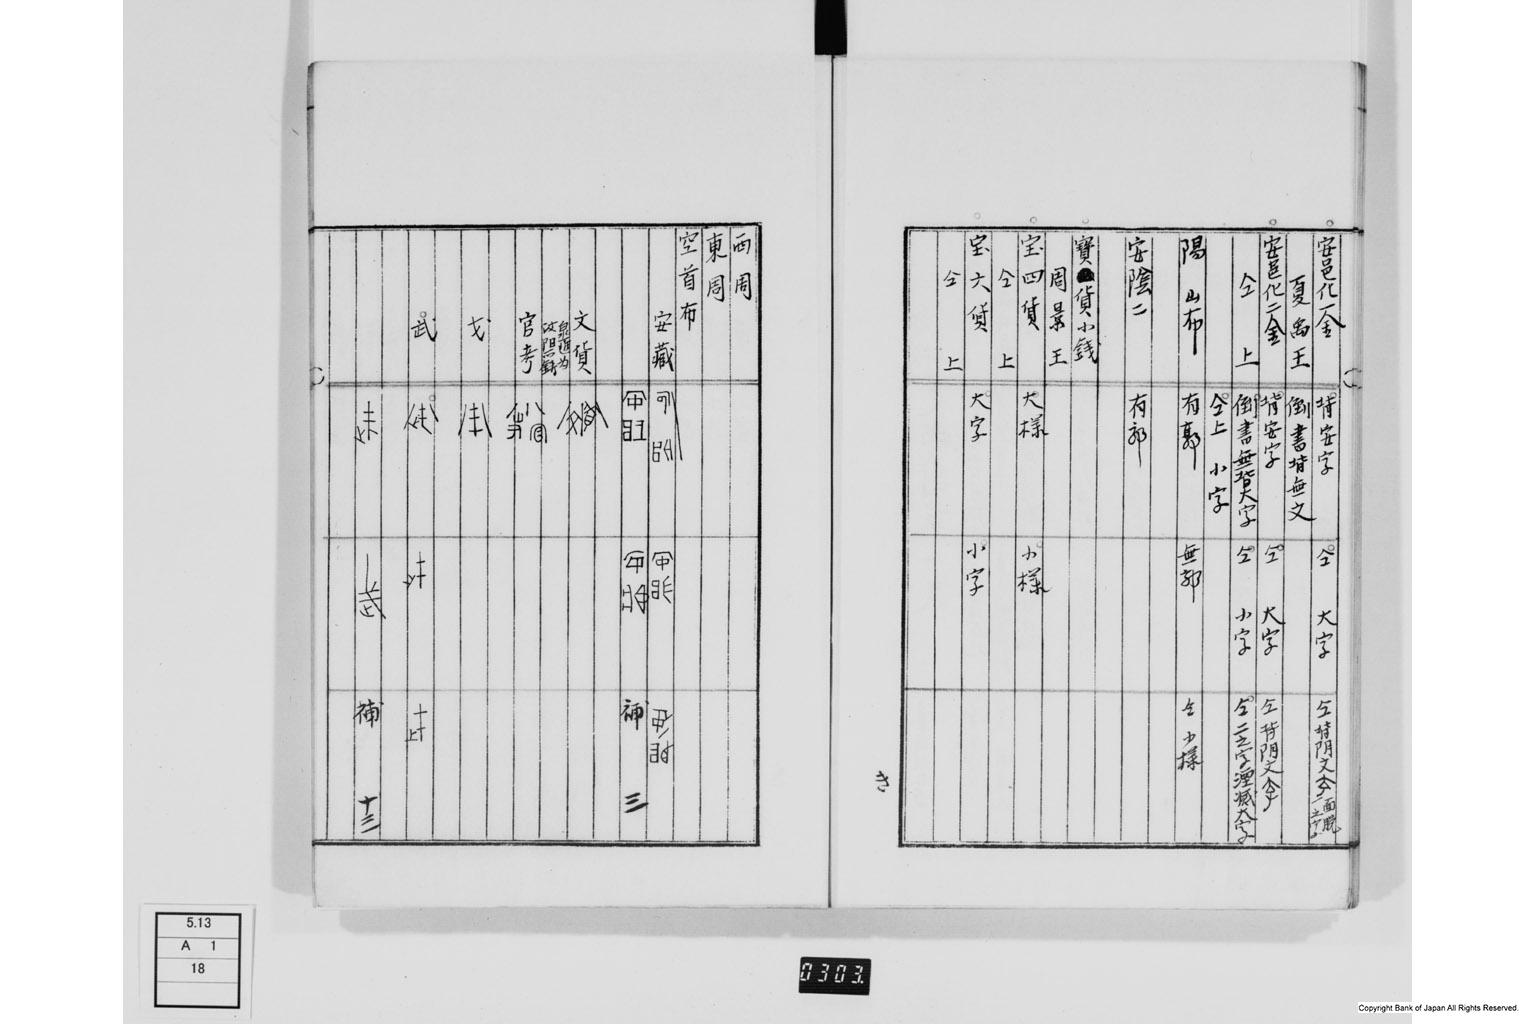 安邑化一金
背安字
仝 大字
仝 背阴文本
夏禹王
倒書背無文
安邑化二金
背安字
仝 大字
仝 背阴文本
仝上
倒書無背大字
仝 小字
仝 二之字湮滅大字
仝上 小字
陽山布
有郭
無郭
仝 小様
安陰二
有郭
寶貨小錢
周景王
宝四貨
大様
小様
仝上
宝六貨
大字
小字
仝上
き
西周
東周
空首布
安藏
補 三
文貨
官考
戈
武
補 十三
5.13
A 1
18
0303.
Copyright Bank of Japan All Rights Reserved.